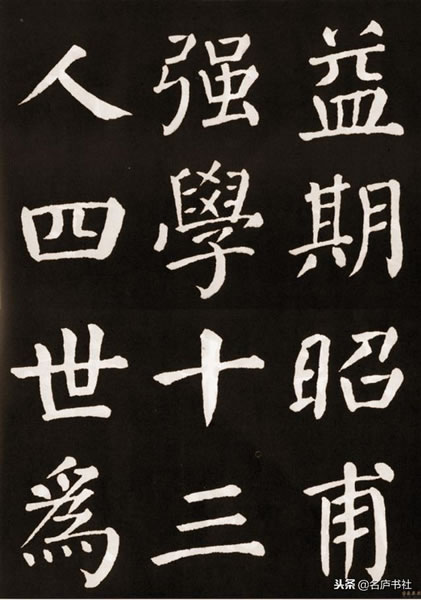 益期昭甫
强學十三
人四世為
头条@名庐书社